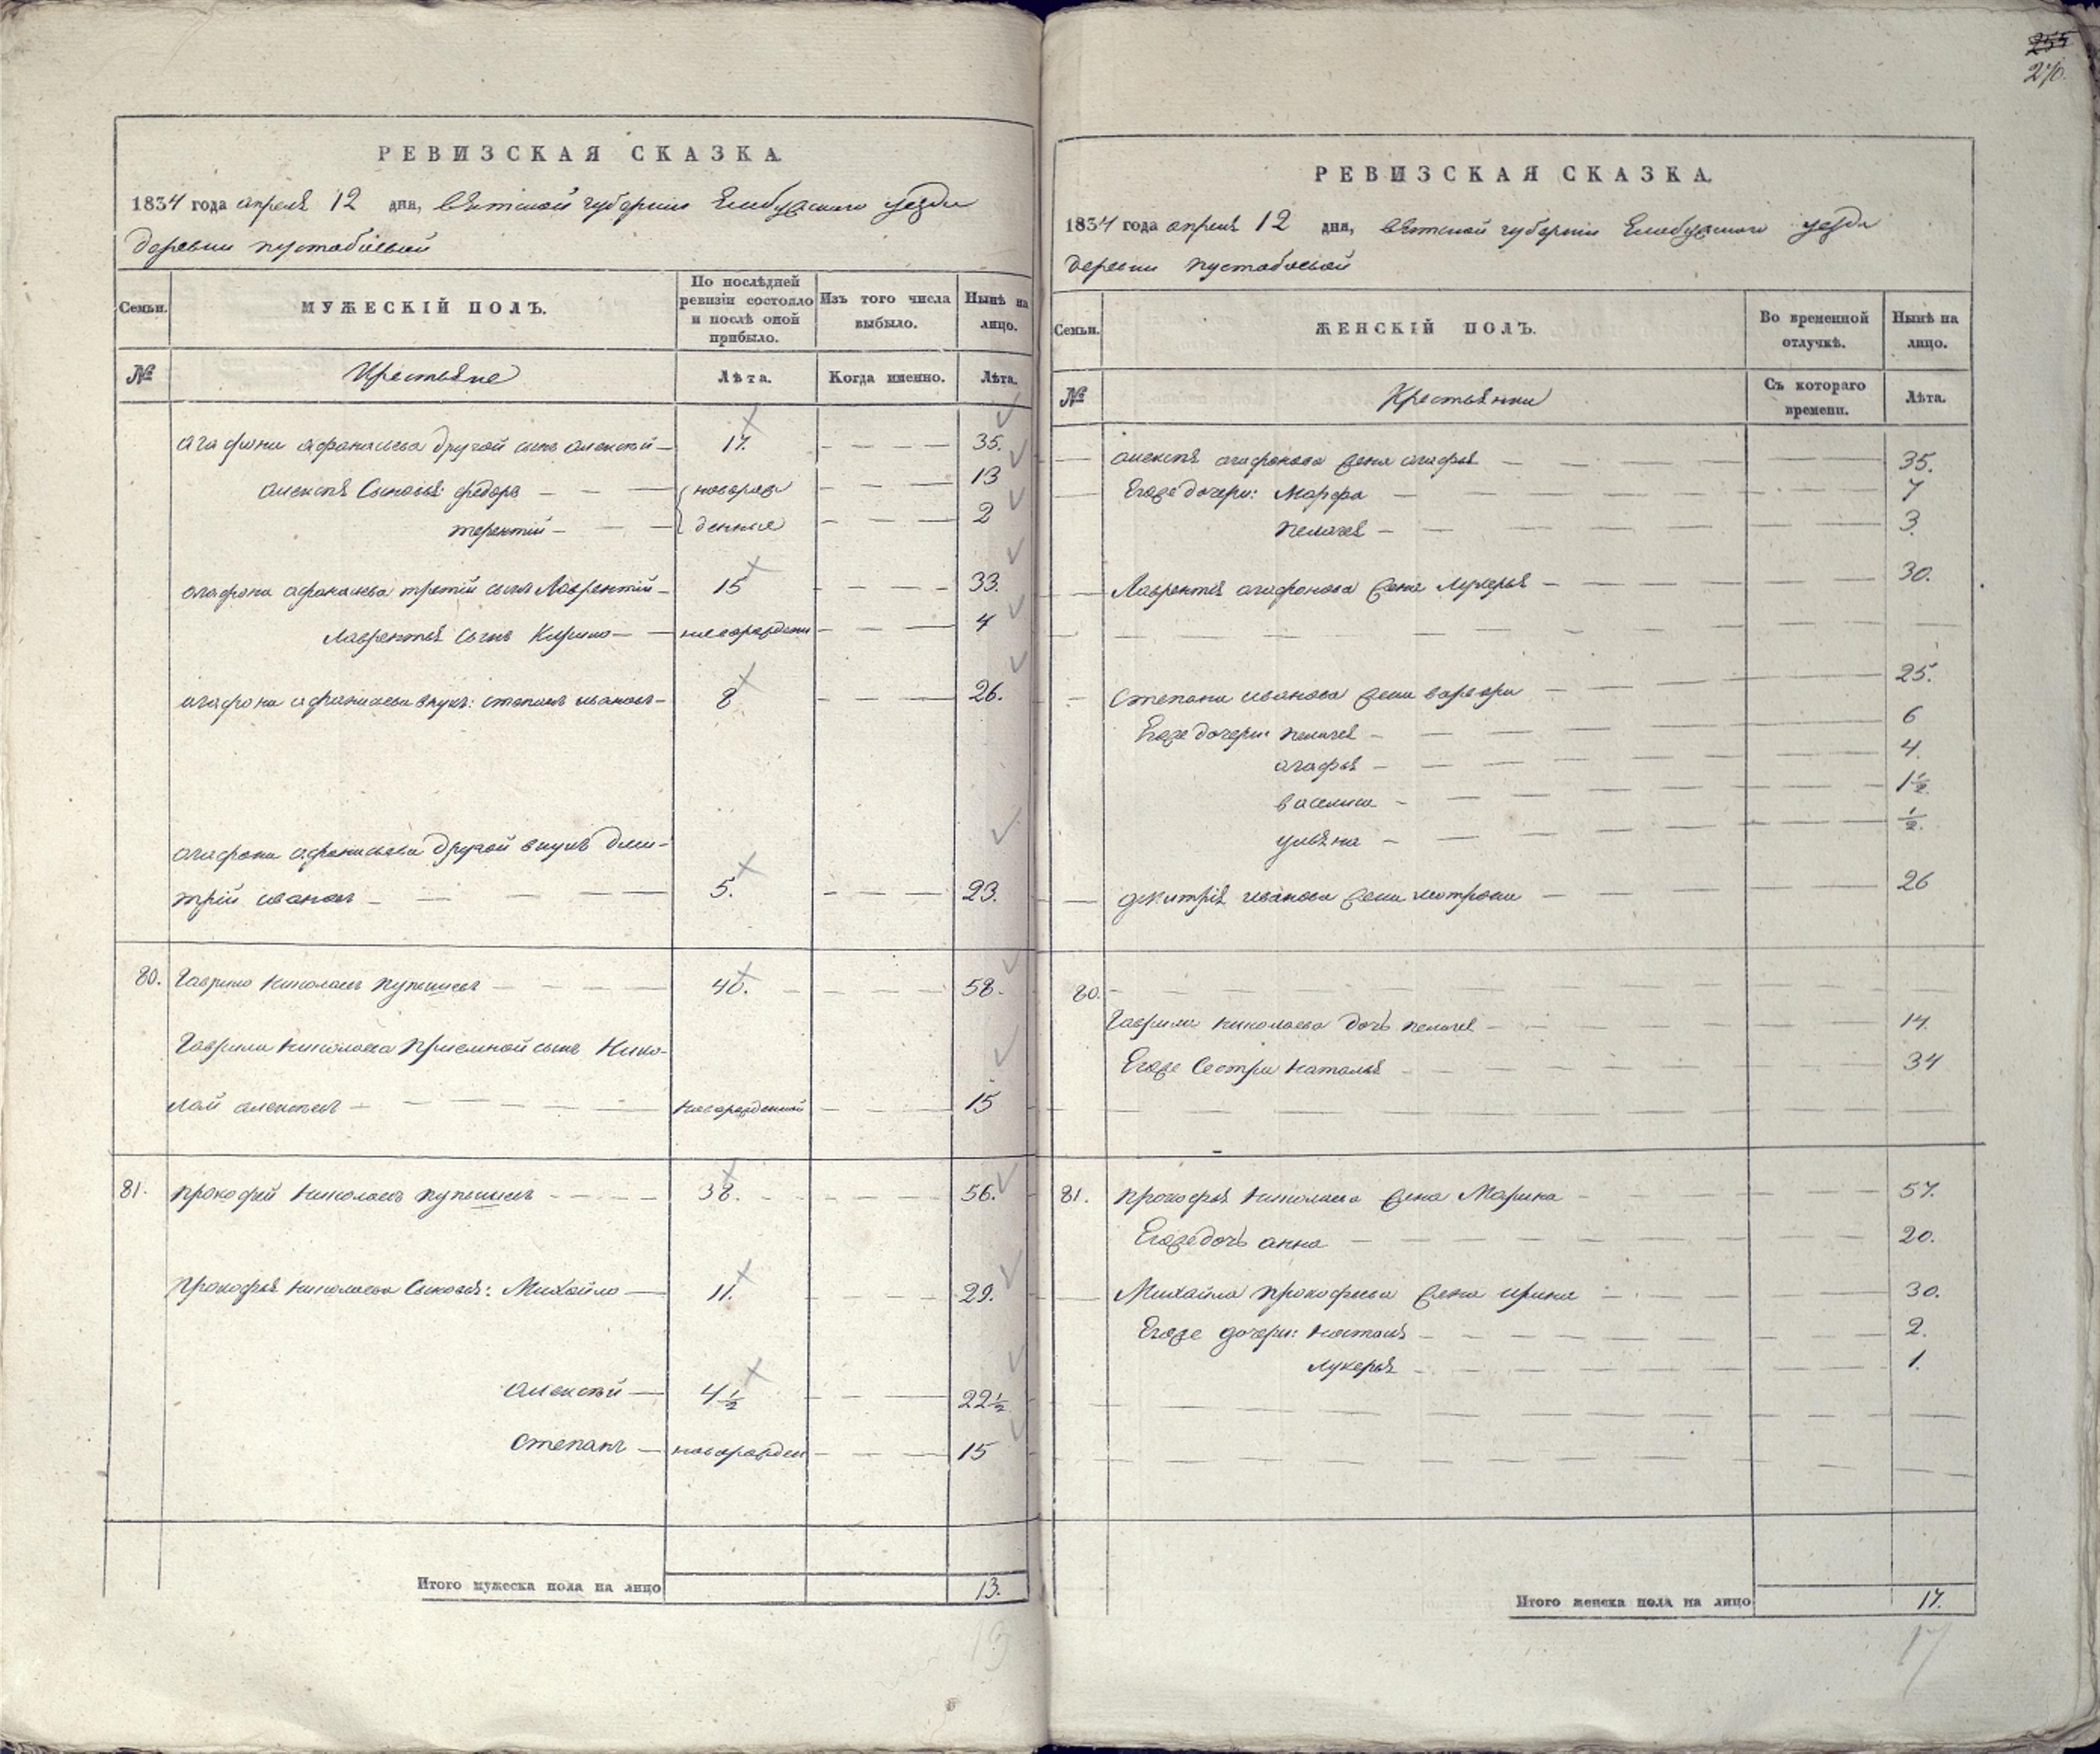 255
270.
РЕВИЗСКАЯ СКАЗКА
1834 года апреля 12 дня, Вятской губернiи Елабужскаго уезда
деревни пустобаевой
Семьи. МУЖЕСКІЙ ПОЛЪ. По послѣдней ревизіи состояло и послѣ оной прибыло. Изъ того числа выбыло. Нынѣ на лицо.
№ Крестьяне Лѣта. Когда именно. Лѣта.
агафона афанасьева другой сынъ алексѣй 17. 35.
алексѣя Сыновья: федоръ новорож 13
терентiй денные 2
агафона афанасьева третiй сынъ Лаврентiй 15 33.
Лаврентья сынъ Кирило новорожден 4
агафона афанасьева внукъ: степанъ ивановъ 8 26.
агафона афанасьева другой внукъ дми-
трiй ивановъ 5. 23.
80. Гаврило николаевъ 40. 58.
Гаврила николаева приемной сынъ Нико-
лай алексѣевъ новорожденной 15
81. прокофей николаевъ 38. 56.
прокофья николаева Сыновья: Михайло 11. 29.
алексѣй 4 1/2 22 1/2
Степанъ новорожден 15
Итого мужеска пола на лицо 13.
13
РЕВИЗСКАЯ СКАЗКА
1834 года апреля 12 дня, вятской губернiи Елабужскаго уезда
деревни пустобаевой
Семьи. ЖЕНСКІЙ ПОЛЪ. Во временной отлучкѣ. Нынѣ на лицо.
№ Крестьянки Съ котораго времени. Лѣта.
алексѣя агафонова жена агафья 35.
Егоже дочери: Марфа 7
пелагея 3.
Лаврентья агафонова жена лукерья 30.
степана иванова жена варвара 25.
Егоже дочери: пелагея 6
агафья 4.
василиса 1 1/2
ульяна 1/2.
дмитрiя иванова жена матрона 26
80.
Гаврила николаева дочь пелагея 14.
Егоже Сестра наталья 34
81. прокофья николаева жена Марина 57.
Егоже дочь анна 20.
Михайла прокофьева жена ирина 30.
Егоже дочери: 2.
лукерья 1.
Итого женска пола на лицо 17.
17